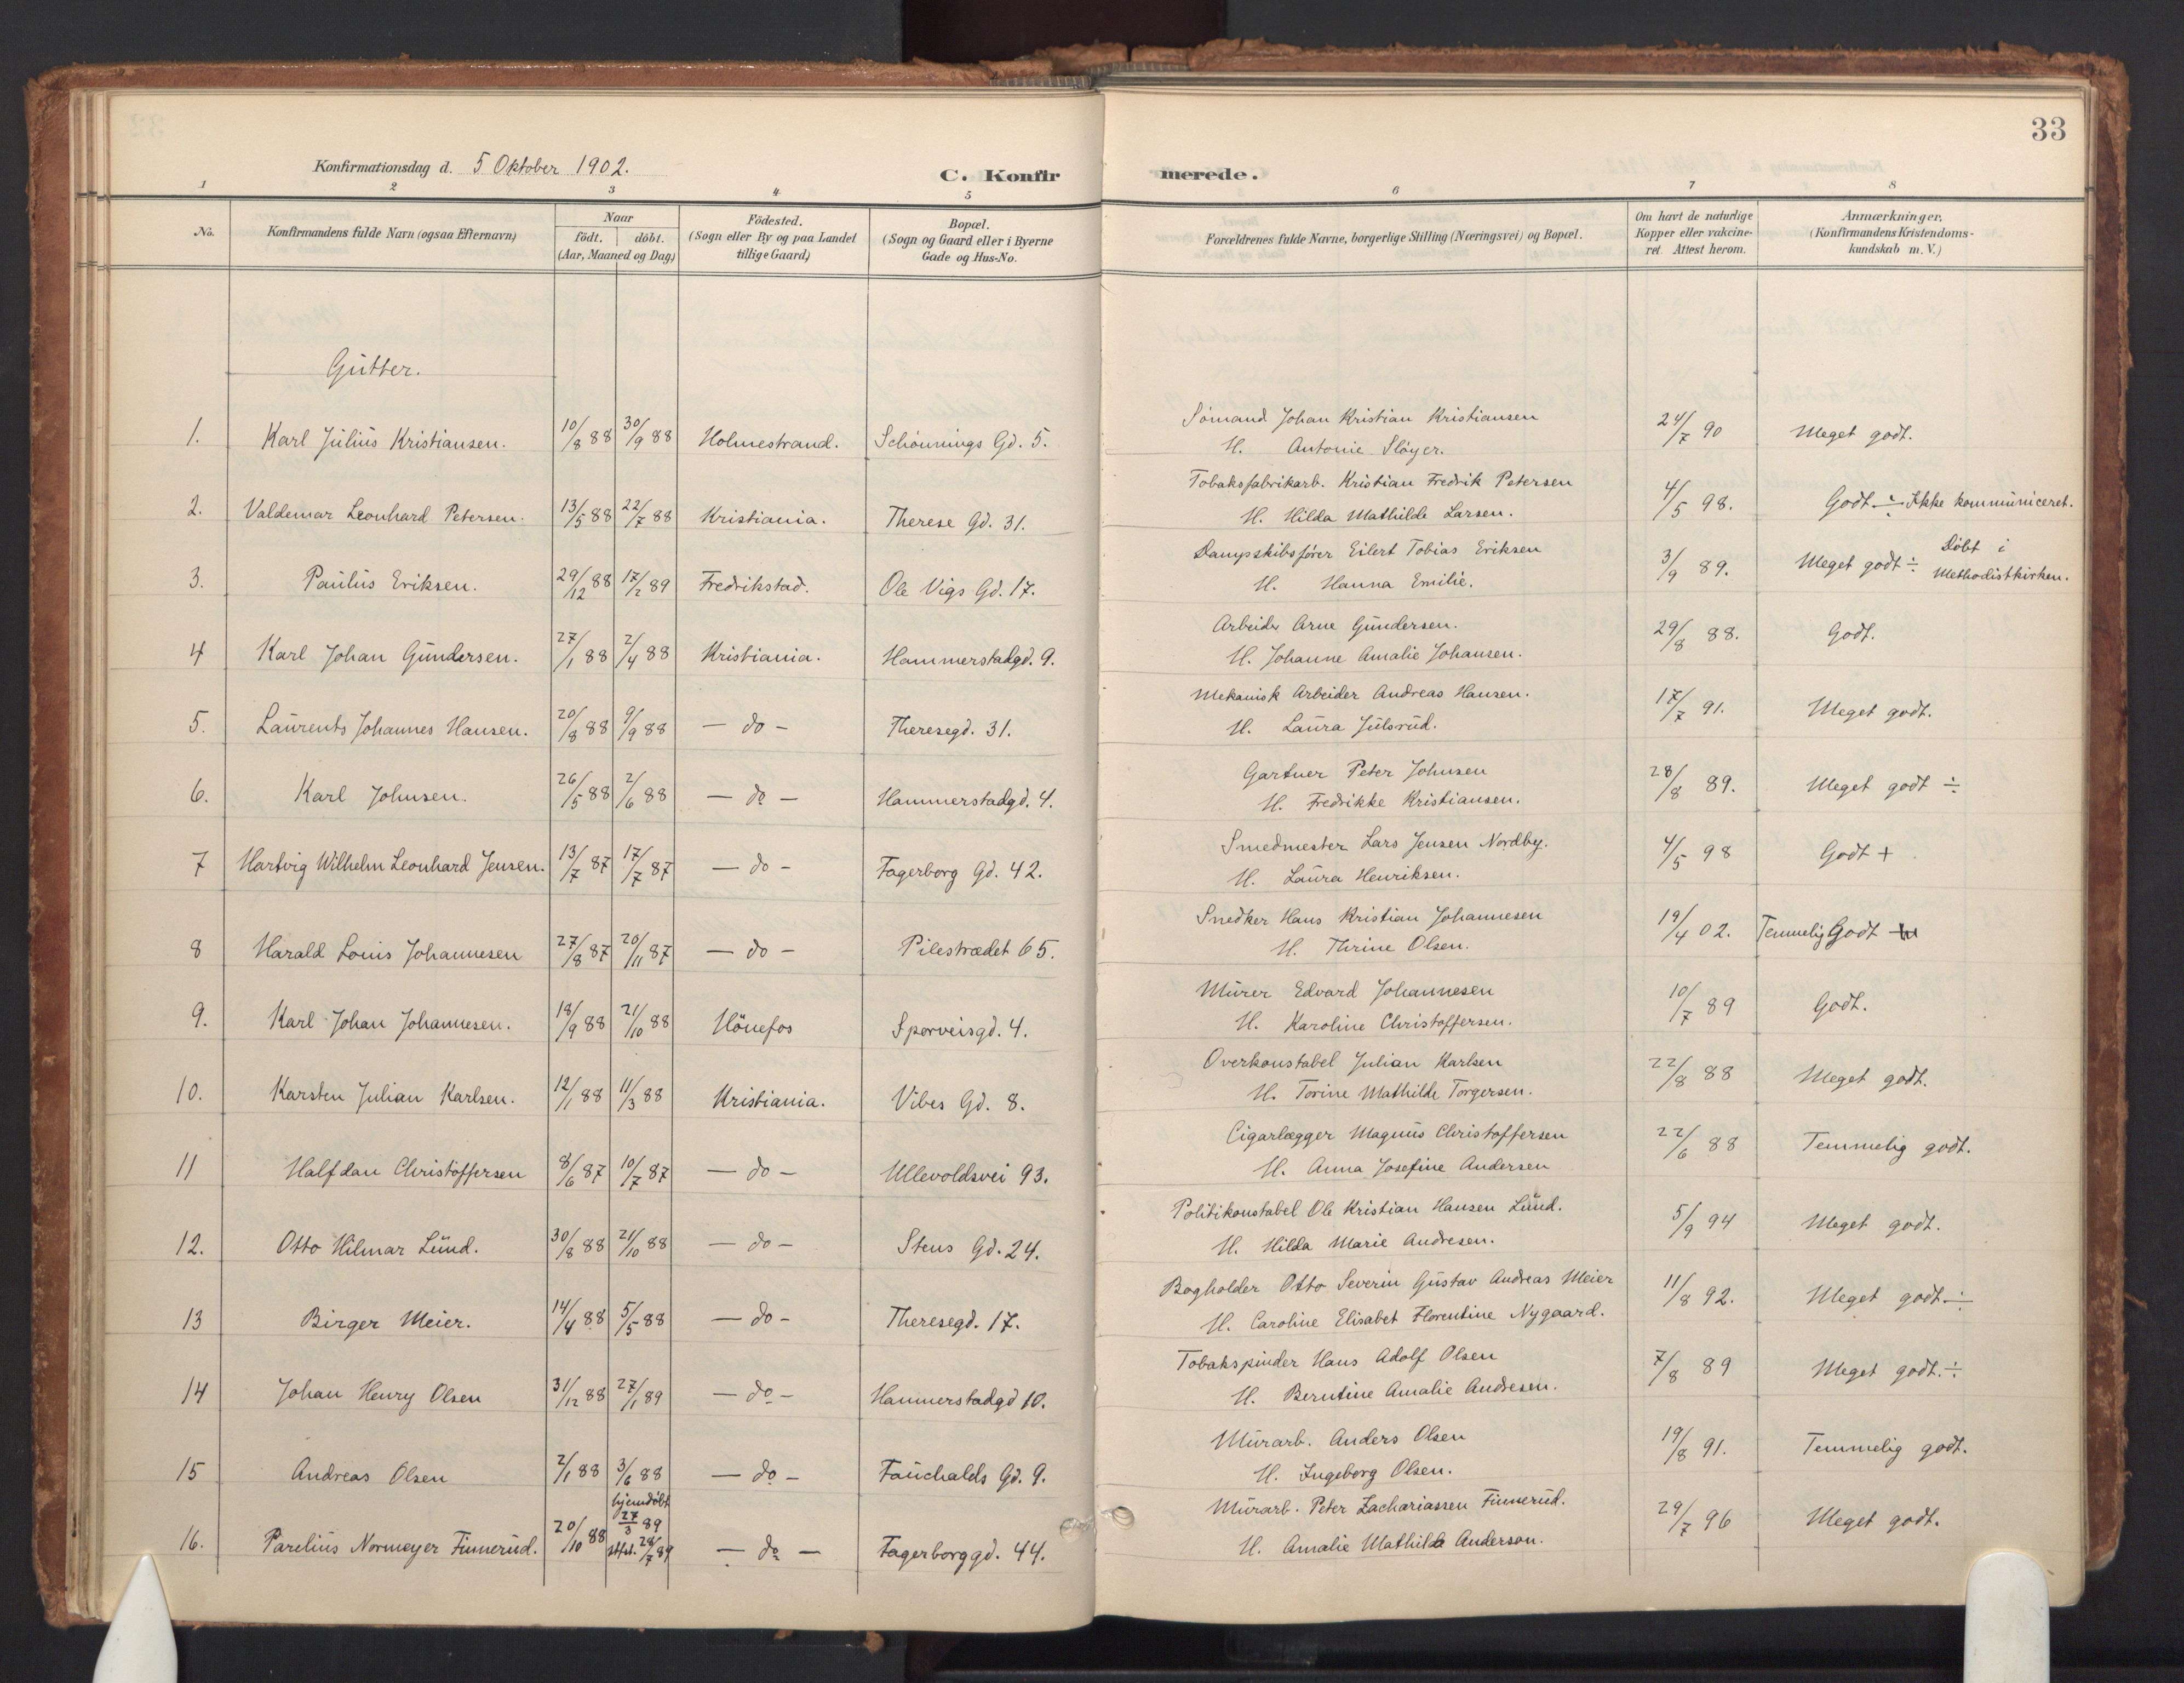 33
Konfirmationsdag d. 5 Oktober 1902.
C. Konfirmerede.
1 2 3 4 5 6 7 8
No.
Konfirmandens fulde Navn (ogsaa Efternavn)
Naar
födt. döbt.
(Aar, Maaned og Dag)
Födested.
(Sogn eller By og paa Landet
tillige Gaard)
Bopæl.
(Sogn og Gaard eller i Byerne
Gade og Hus-No.
Forældrenes fulde Navne, borgerlige Stilling (Næringsvei) og Bopæl.
Om havt de naturlige
Kopper eller vakcine-
ret. Attest herom.
Anmærkninger.
(Konfirmandens Kristendoms-
kundskab m. V.)
Gutter.
1. Karl Julius Kristiansen. 10/8 88 30/9 88 Holmestrand. Schönnings Gd. 5. Sömand Johan Kristian Kristiansen 24/7 90 Meget godt.
H. Antonie Slöyer.
2. Valdemar Leonhard Petersen. 13/5 88 22/7 88 Kristiania. Therese Gd. 31. Tobaksfabrikarb. Kristian Fredrik Petersen 4/5 98. Godt ÷ Ikke kommuniceret.
H. Hilda Mathilde Larsen.
3. Paulus Eriksen. 29/12 88 17/2 89 Fredrikstad. Ole Vigs Gd. 17. Dampskibsförer Eilert Tobias Eriksen 3/9 89. Meget godt ÷ Döbt i
H. Hanna Emilie. Methodistkirken.
4 Karl Johan Gundersen. 27/1 88 2/4 88 Kristiania. Hammerstadgd. 9. Arbeider Arne Gundersen. 29/8 88. Godt.
H. Johanne Amalie Johansen.
5. Laurents Johannes Hansen. 20/8 88 9/9 88 — do — Theresegd. 31. Mekanisk Arbeider Andreas Hansen. 17/7 91. Meget godt.
H. Laura Julsrud.
6. Karl Johnsen. 26/5 88 2/6 88 — do — Hammerstadgd. 4. Gartner Peter Johnsen 28/8 89. Meget godt ÷
H. Fredrikke Kristiansen.
7 Hartvig Wilhelm Leonhard Jensen. 13/7 87 17/7 87 — do — Fagerborg Gd. 42. Smedmester Lars Jensen Nordby. 4/5 98 Godt +
H. Laura Henriksen.
8 Harald Louis Johannesen 27/8 87 20/11 87 — do — Pilestrædet 65. Snedker Hans Kristian Johannesen 19/4 02. Temmelig Godt
H. Thrine Olsen.
9. Karl Johan Johannesen. 18/9 88 21/10 88 Hönefos Sporveisgd. 4. Murer Edvard Johannesen 10/7 89 Godt.
H. Karoline Christoffersen.
10. Karsten Julian Karlsen. 12/1 88 11/3 88 Kristiania. Vibes Gd. 8. Overkonstabel Julian Karlsen 22/8 88 Meget godt.
H. Torine Mathilde Torgersen.
11 Halfdan Christoffersen 8/6 87 10/7 87 — do — Ullevoldsvei 93. Cigarlægger Magnus Christoffersen 22/6 88 Temmelig godt.
H. Anna Josefine Andersen
12. Otto Hilmar Lund. 30/8 88 21/10 88 — do — Stens Gd. 24. Politikonstabel Ole Kristian Hansen Lund. 5/9 94 Meget godt.
H. Hilda Marie Andresen.
13 Birger Meier. 14/4 88 5/5 88 — do — Theresegd. 17. Bogholder Otto Severin Gustav Andreas Meier 11/8 92. Meget godt ÷
H. Caroline Elisabet Florentine Nygaard.
14 Johan Henry Olsen 31/12 88 27/1 89 — do — Hammerstadgd 10. Tobakspinder Hans Adolf Olsen 7/8 89 Meget godt. ÷
H. Berntine Amalie Andresen.
15 Andreas Olsen 2/1 88 3/6 88 — do — Fauchalds Gd. 9. Murarb. Anders Olsen 19/8 91. Temmelig godt.
H. Ingeborg Olsen.
hjemdöbt
27/3 89
16. Parelius Normeyer Finnerud. 20/10 88 stfst. 28/7 89 — do — Fagerborggd. 44. Murarb. Peter Zachariassen Finnerud. 29/7 96 Meget godt.
H. Amalie Mathilde Anderson.